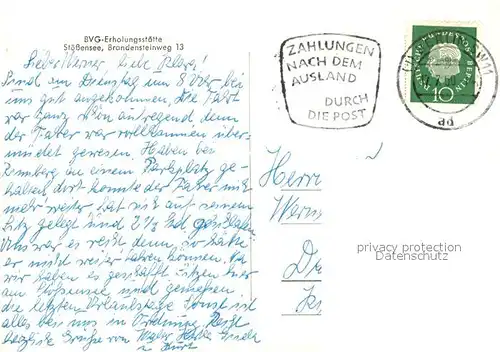 BVG-Erholungsstätte
Stößensee, Brandensteinweg 13
Lieber Werner, liebe Klara!
Sind am Dienstag um 8 Uhr bei
uns gut angekommen. Die Fahrt
war ganz schön anstrengend denn
der Fahrer war vollkommen über-
müdet gewesen. Haben bei
an einem Parkplatz ge-
halten dort konnte der Fahrer nicht
mehr weiter hat sich auf seinem
Sitz gelegt und 2 1/2 Std geschlafen
Uns war es recht denn so hätte
er nicht weiter fahren können. Na
wir haben es geschafft sitzen hier
am Stößensee und genießen
die letzten Urlaubstage. Sonst ist
alles bei uns in Ordnung. Recht
herzliche Grüße von
u. Kurt
ZAHLUNGEN
NACH DEM
AUSLAND
DURCH
DIE POST
DEUTSCHE BUNDESPOST BERLIN
10
BERLIN SW11
ad
Herrn
Wern
privacy protection
Datenschutz